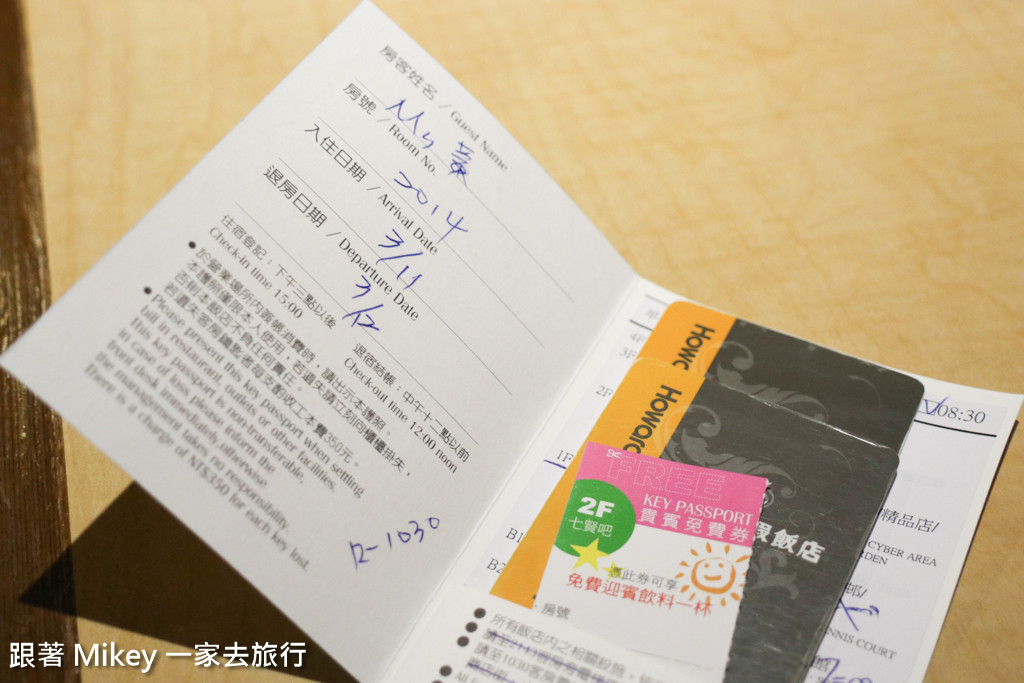 房客姓名 / Guest Name
Ms 黃
房號 / Room No.
2014
入住日期 / Arrival Date
3/11
退房日期 / Departure Date
3/12
住宿登記：下午三點以後
Check-in time 15:00
退宿結帳：中午十二點以前
Check-out time 12:00 noon
於營業場所內簽帳消費時，請出示本護照。
本護照僅限本人使用，若遺失請立刻向櫃檯掛失，
否則本飯店不負任何責任。
若遺失客房鑰匙者每支酌收工本費350元。
Please present this key passport when settling
bill in restaurant, outlets or other facilities.
This key passport is not-transferable,
in case of loss please inform the
front desk immediately otherwise
the management takes no responsibility.
There is a charge of NT$350 for each key lost.
R-1030
4F
3F
2F
1F
B1
B2
08:30
Howa
Howard
假飯店
FREE
KEY PASSPORT
貴賓免費券
2F
七賢吧
憑此券可享
免費迎賓飲料一杯
房號
精品店/
CYBER AREA
NNIS COURT
所有飯店內之相關設施，
跟著 Mikey 一家去旅行